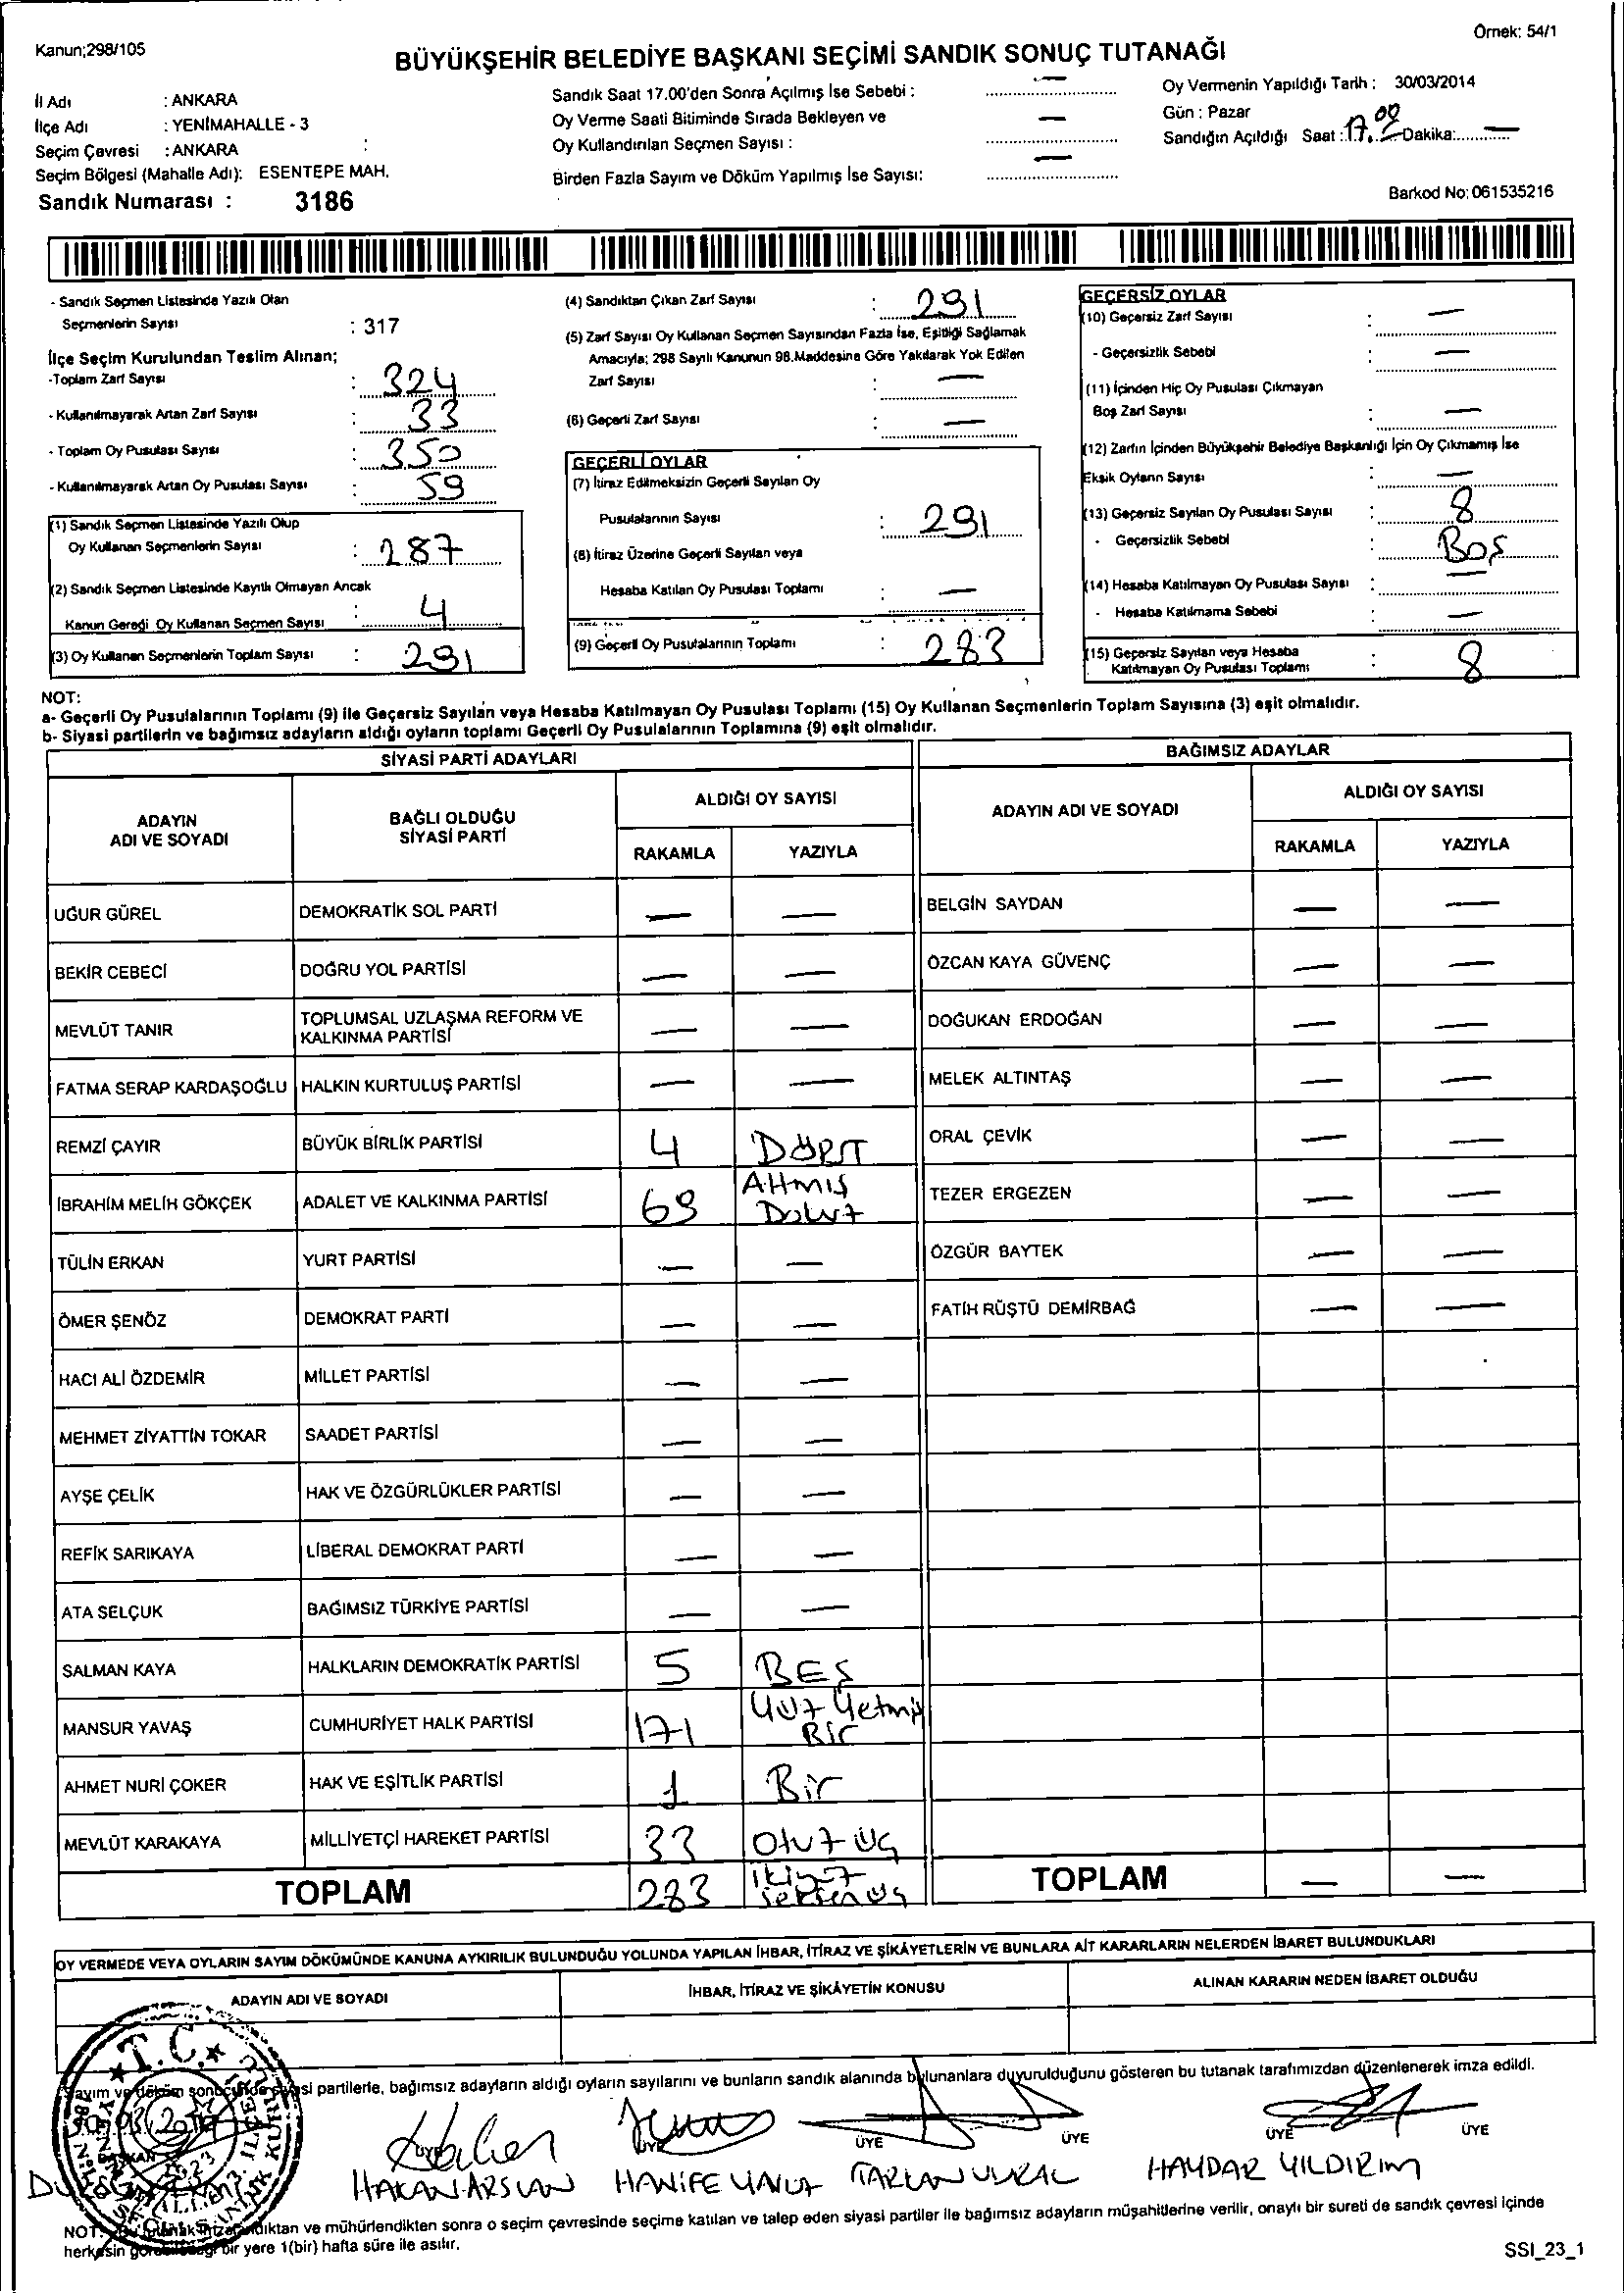 Kanun;298/105
Örnek: 54/1
BÜYÜKŞEHİR BELEDİYE BAŞKANI SEÇİMİ SANDIK SONUÇ TUTANAĞI
İl Adı : ANKARA
İlçe Adı : YENİMAHALLE - 3
Seçim Çevresi : ANKARA
Seçim Bölgesi (Mahalle Adı): ESENTEPE MAH.
Sandık Numarası : 3186
Sandık Saat 17.00'den Sonra Açılmış İse Sebebi : —
Oy Verme Saati Bitiminde Sırada Bekleyen ve
Oy Kullandırılan Seçmen Sayısı : —
Birden Fazla Sayım ve Döküm Yapılmış İse Sayısı: —
Oy Vermenin Yapıldığı Tarih : 30/03/2014
Gün : Pazar
Sandığın Açıldığı Saat : 17.00 Dakika: —
Barkod No: 061535216
- Sandık Seçmen Listesinde Yazılı Olan
Seçmenlerin Sayısı : 317
İlçe Seçim Kurulundan Teslim Alınan;
-Toplam Zarf Sayısı : 324
- Kullanılmayarak Artan Zarf Sayısı : 33
- Toplam Oy Pusulası Sayısı : 350
- Kullanılmayarak Artan Oy Pusulası Sayısı : 59
(1) Sandık Seçmen Listesinde Yazılı Olup
Oy Kullanan Seçmenlerin Sayısı : 287
(2) Sandık Seçmen Listesinde Kayıtlı Olmayan Ancak
Kanun Gereği Oy Kullanan Seçmen Sayısı : 4
(3) Oy Kullanan Seçmenlerin Toplam Sayısı : 291
(4) Sandıktan Çıkan Zarf Sayısı : 291
(5) Zarf Sayısı Oy Kullanan Seçmen Sayısından Fazla İse, Eşitliği Sağlamak
Amacıyla; 298 Sayılı Kanunun 98.Maddesine Göre Yakılarak Yok Edilen
Zarf Sayısı : —
(6) Geçerli Zarf Sayısı : —
GEÇERLİ OYLAR
(7) İtiraz Edilmeksizin Geçerli Sayılan Oy
Pusulalarının Sayısı : 291
(8) İtiraz Üzerine Geçerli Sayılan veya
Hesaba Katılan Oy Pusulası Toplamı : —
(9) Geçerli Oy Pusulalarının Toplamı : 283
GEÇERSİZ OYLAR
(10) Geçersiz Zarf Sayısı : —
- Geçersizlik Sebebi : —
(11) İçinden Hiç Oy Pusulası Çıkmayan
Boş Zarf Sayısı : —
(12) Zarfın İçinden Büyükşehir Belediye Başkanlığı İçin Oy Çıkmamış İse
Eksik Oyların Sayısı : —
(13) Geçersiz Sayılan Oy Pusulası Sayısı : 8
- Geçersizlik Sebebi : Boş
(14) Hesaba Katılmayan Oy Pusulası Sayısı : —
- Hesaba Katılmama Sebebi : —
(15) Geçersiz Sayılan veya Hesaba
Katılmayan Oy Pusulası Toplamı : 8
NOT:
a- Geçerli Oy Pusulalarının Toplamı (9) ile Geçersiz Sayılan veya Hesaba Katılmayan Oy Pusulası Toplamı (15) Oy Kullanan Seçmenlerin Toplam Sayısına (3) eşit olmalıdır.
b- Siyasi partilerin ve bağımsız adayların aldığı oyların toplamı Geçerli Oy Pusulalarının Toplamına (9) eşit olmalıdır.
SİYASİ PARTİ ADAYLARI
ADAYIN ADI VE SOYADI
BAĞLI OLDUĞU SİYASİ PARTİ
ALDIĞI OY SAYISI
RAKAMLA YAZIYLA
UĞUR GÜREL DEMOKRATİK SOL PARTİ — —
BEKİR CEBECİ DOĞRU YOL PARTİSİ — —
MEVLÜT TANIR TOPLUMSAL UZLAŞMA REFORM VE KALKINMA PARTİSİ — —
FATMA SERAP KARDAŞOĞLU HALKIN KURTULUŞ PARTİSİ — —
REMZİ ÇAYIR BÜYÜK BİRLİK PARTİSİ 4 DÖRT
İBRAHİM MELİH GÖKÇEK ADALET VE KALKINMA PARTİSİ 69 Altmış Dokuz
TÜLİN ERKAN YURT PARTİSİ — —
ÖMER ŞENÖZ DEMOKRAT PARTİ — —
HACI ALİ ÖZDEMİR MİLLET PARTİSİ — —
MEHMET ZİYATTİN TOKAR SAADET PARTİSİ — —
AYŞE ÇELİK HAK VE ÖZGÜRLÜKLER PARTİSİ — —
REFİK SARIKAYA LİBERAL DEMOKRAT PARTİ — —
ATA SELÇUK BAĞIMSIZ TÜRKİYE PARTİSİ — —
SALMAN KAYA HALKLARIN DEMOKRATİK PARTİSİ 5 BEŞ
MANSUR YAVAŞ CUMHURİYET HALK PARTİSİ 171 Yüz Yetmiş Bir
AHMET NURİ ÇOKER HAK VE EŞİTLİK PARTİSİ 1 Bir
MEVLÜT KARAKAYA MİLLİYETÇİ HAREKET PARTİSİ 33 Otuz üç
TOPLAM 283 ikiyüz seksen üç
BAĞIMSIZ ADAYLAR
ADAYIN ADI VE SOYADI
ALDIĞI OY SAYISI
RAKAMLA YAZIYLA
BELGİN SAYDAN — —
ÖZCAN KAYA GÜVENÇ — —
DOĞUKAN ERDOĞAN — —
MELEK ALTINTAŞ — —
ORAL ÇEVİK — —
TEZER ERGEZEN — —
ÖZGÜR BAYTEK — —
FATİH RÜŞTÜ DEMİRBAĞ — —
TOPLAM — —
OY VERMEDE VEYA OYLARIN SAYIM DÖKÜMÜNDE KANUNA AYKIRILIK BULUNDUĞU YOLUNDA YAPILAN İHBAR, İTİRAZ VE ŞİKÂYETLERİN VE BUNLARA AİT KARARLARIN NELERDEN İBARET BULUNDUKLARI
ADAYIN ADI VE SOYADI
İHBAR, İTİRAZ VE ŞİKÂYETİN KONUSU
ALINAN KARARIN NEDEN İBARET OLDUĞU
T.C.
Sayım ve döküm sonucunda siyasi partilerle, bağımsız adayların aldığı oyların sayılarını ve bunların sandık alanında bulunanlara duyurulduğunu gösteren bu tutanak tarafımızdan düzenlenerek imza edildi.
30.03.2014
BAŞKAN ÜYE ÜYE ÜYE ÜYE ÜYE ÜYE
HAKAN ARSLAN HANİFE YAVUZ TARKAN VURAL HAYDAR YILDIRIM
NOT: Bu tutanak imzalandıktan ve mühürlendikten sonra o seçim çevresinde seçime katılan ve talep eden siyasi partiler ile bağımsız adayların müşahitlerine verilir, onaylı bir sureti de sandık çevresi içinde
herkesin görebileceği bir yere 1(bir) hafta süre ile asılır.
SSI_23_1